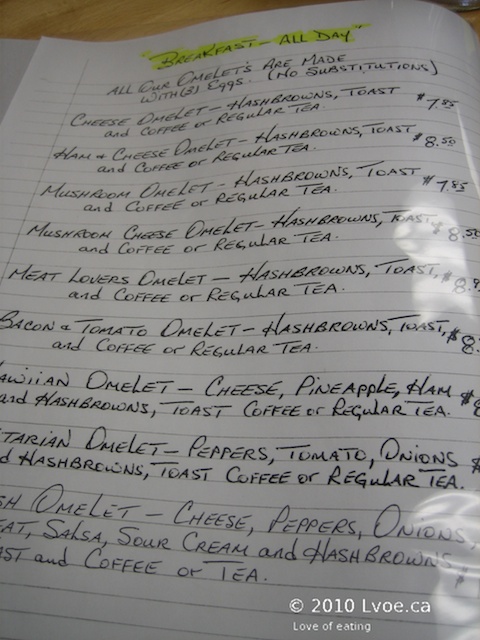 "BREAKFAST - ALL DAY"
ALL OUR OMELET'S ARE MADE
WITH (3) EGGS. (NO SUBSTITUTIONS)
CHEESE OMELET - HASHBROWNS, TOAST $7.95
and COFFEE or REGULAR TEA.
HAM & CHEESE OMELET - HASHBROWNS, TOAST $8.50
and COFFEE or REGULAR TEA.
MUSHROOM OMELET - HASHBROWNS, TOAST $7.95
and COFFEE or REGULAR TEA.
MUSHROOM CHEESE OMELET - HASHBROWNS, TOAST $8.50
and COFFEE or REGULAR TEA.
MEAT LOVERS OMELET - HASHBROWNS, TOAST, $8.
and COFFEE or REGULAR TEA.
BACON & TOMATO OMELET - HASHBROWNS, TOAST, $8.
and COFFEE or REGULAR TEA.
OMELET - CHEESE, PINEAPPLE, HAM $
and HASHBROWNS, TOAST COFFEE or REGULAR TEA.
OMELET - PEPPERS, TOMATO, ONIONS $
HASHBROWNS, TOAST COFFEE or REGULAR TEA.
OMELET - CHEESE, PEPPERS, ONIONS,
SALSA, SOUR CREAM and HASHBROWNS $
and COFFEE or TEA.
© 2010 Lvoe.ca
Love of eating